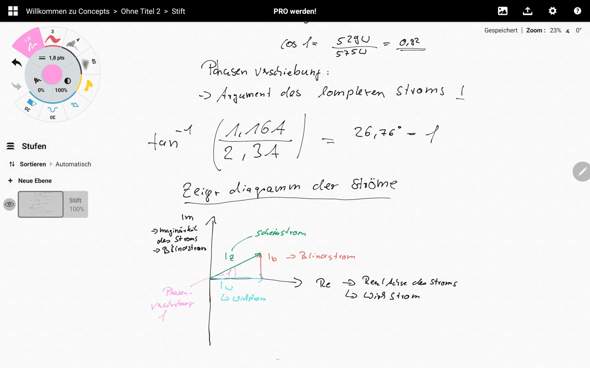 Willkommen zu Concepts > Ohne Titel 2 > Stift
PRO werden!
Gespeichert | Zoom : 23% 0°
3
1,8 pts
0% 100%
Stufen
Sortieren > Automatisch
+ Neue Ebene
Stift
100%
cos φ = 529W / 575W = 0,92
Phasenverschiebung:
→ Argument des komplexen Stroms !
tan⁻¹ ( 1,16A / 2,3A ) = 26,76° = φ
Zeigerdiagramm der Ströme
Im
→ Imaginärteil
des Stroms
→ Blindstrom
Scheinstrom
Ig
Ib → Blindstrom
Iw
↳ Wirkstrom
Phasen-
verschiebung
φ
Re → Real Achse des Stroms
↳ Wirkstrom